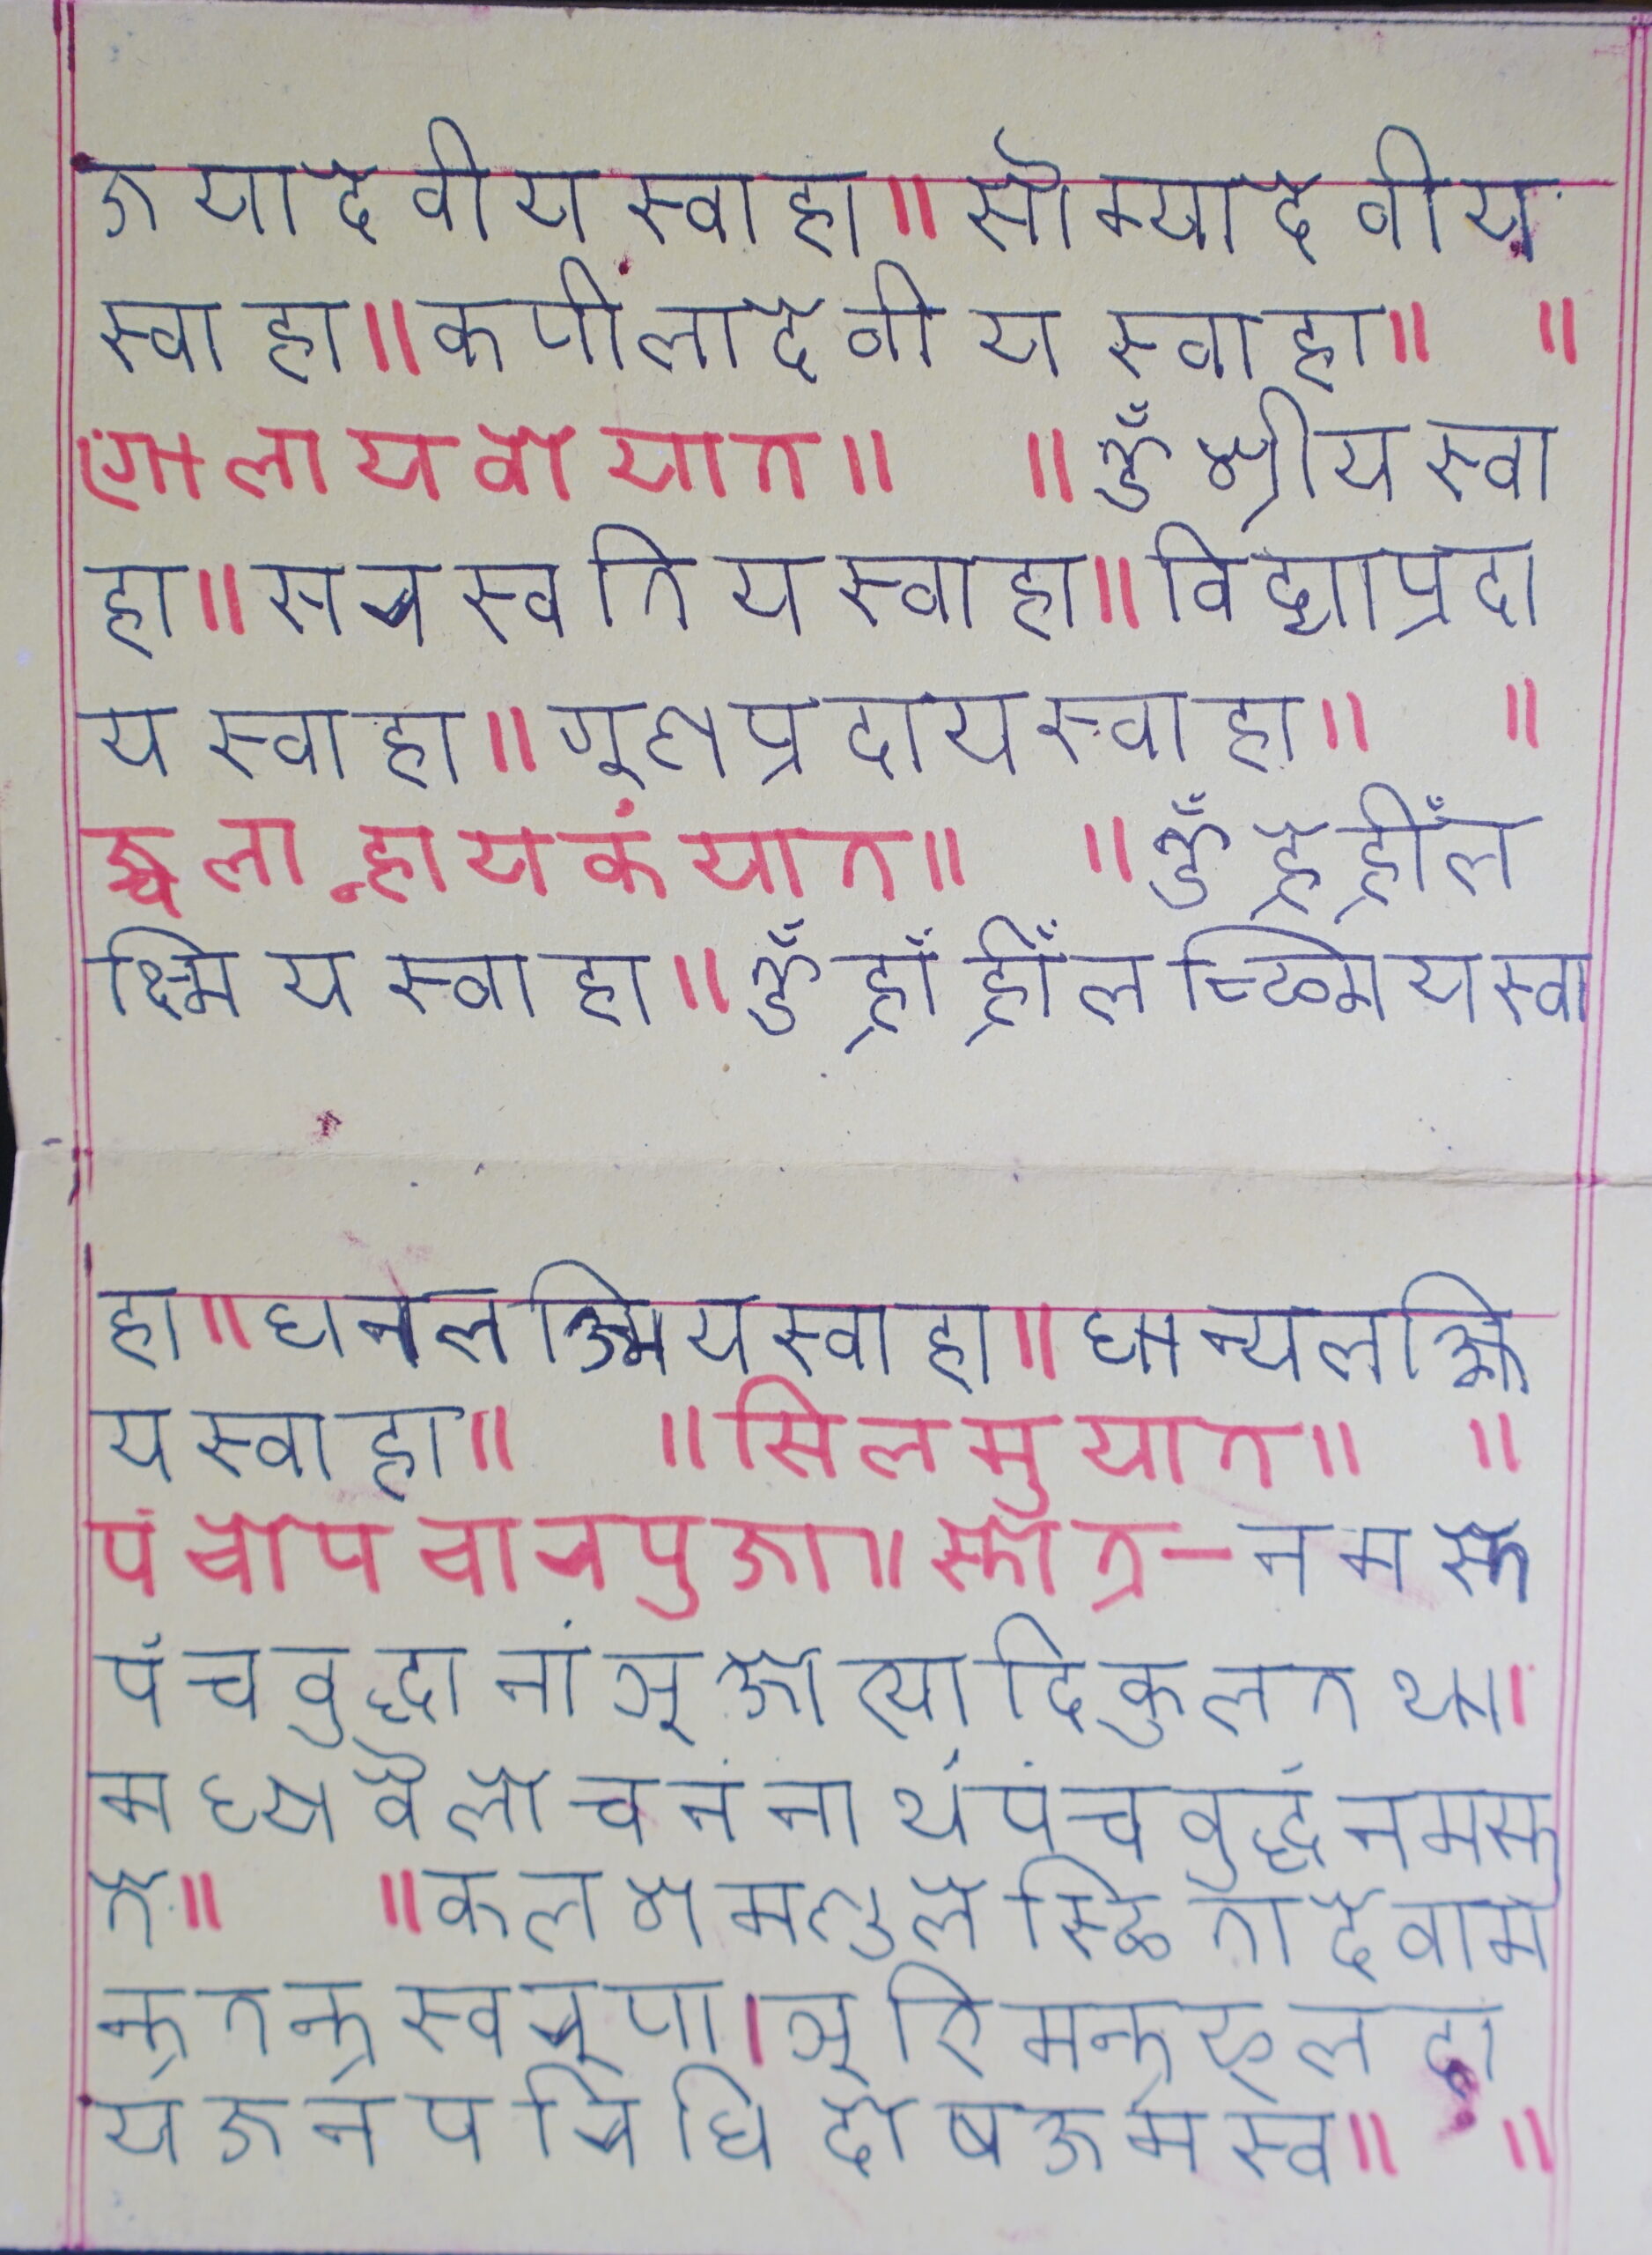 जयादेवीय स्वाहा॥सौम्यादेवीय
स्वाहा॥कपीलादेवीय स्वाहा॥ ॥
लायबो यात॥ ॥ॐ श्रीय स्वा
हा॥सरस्वतिय स्वाहा॥विद्याप्रदा
य स्वाहा॥गूणप्रदाय स्वाहा॥ ॥
ज्वला न्हायकं यात॥ ॥ॐ ह्रीँ ल
क्ष्मिय स्वाहा॥ॐ ह्राँ ह्रीँ लच्छ्मिय स्वा
हा॥धनलक्ष्मिय स्वाहा॥धान्यलक्ष्मि
य स्वाहा॥ ॥सिलमु यात॥ ॥
पंचोपचारपुजा॥स्तोत्र–नमस्ते
पंचबुद्धानां भूजेत्यादिकुल तथा।
मध्य वैलोचनं नाथं पंचबुद्धं नमस्तु
ते॥ ॥कलशे मण्डले स्थितादेवा म
न्त्रतन्त्रस्वरूपा।भूक्तिमन्त्रफलदा
य जनपरिधि दोष जमस्व॥ ॥